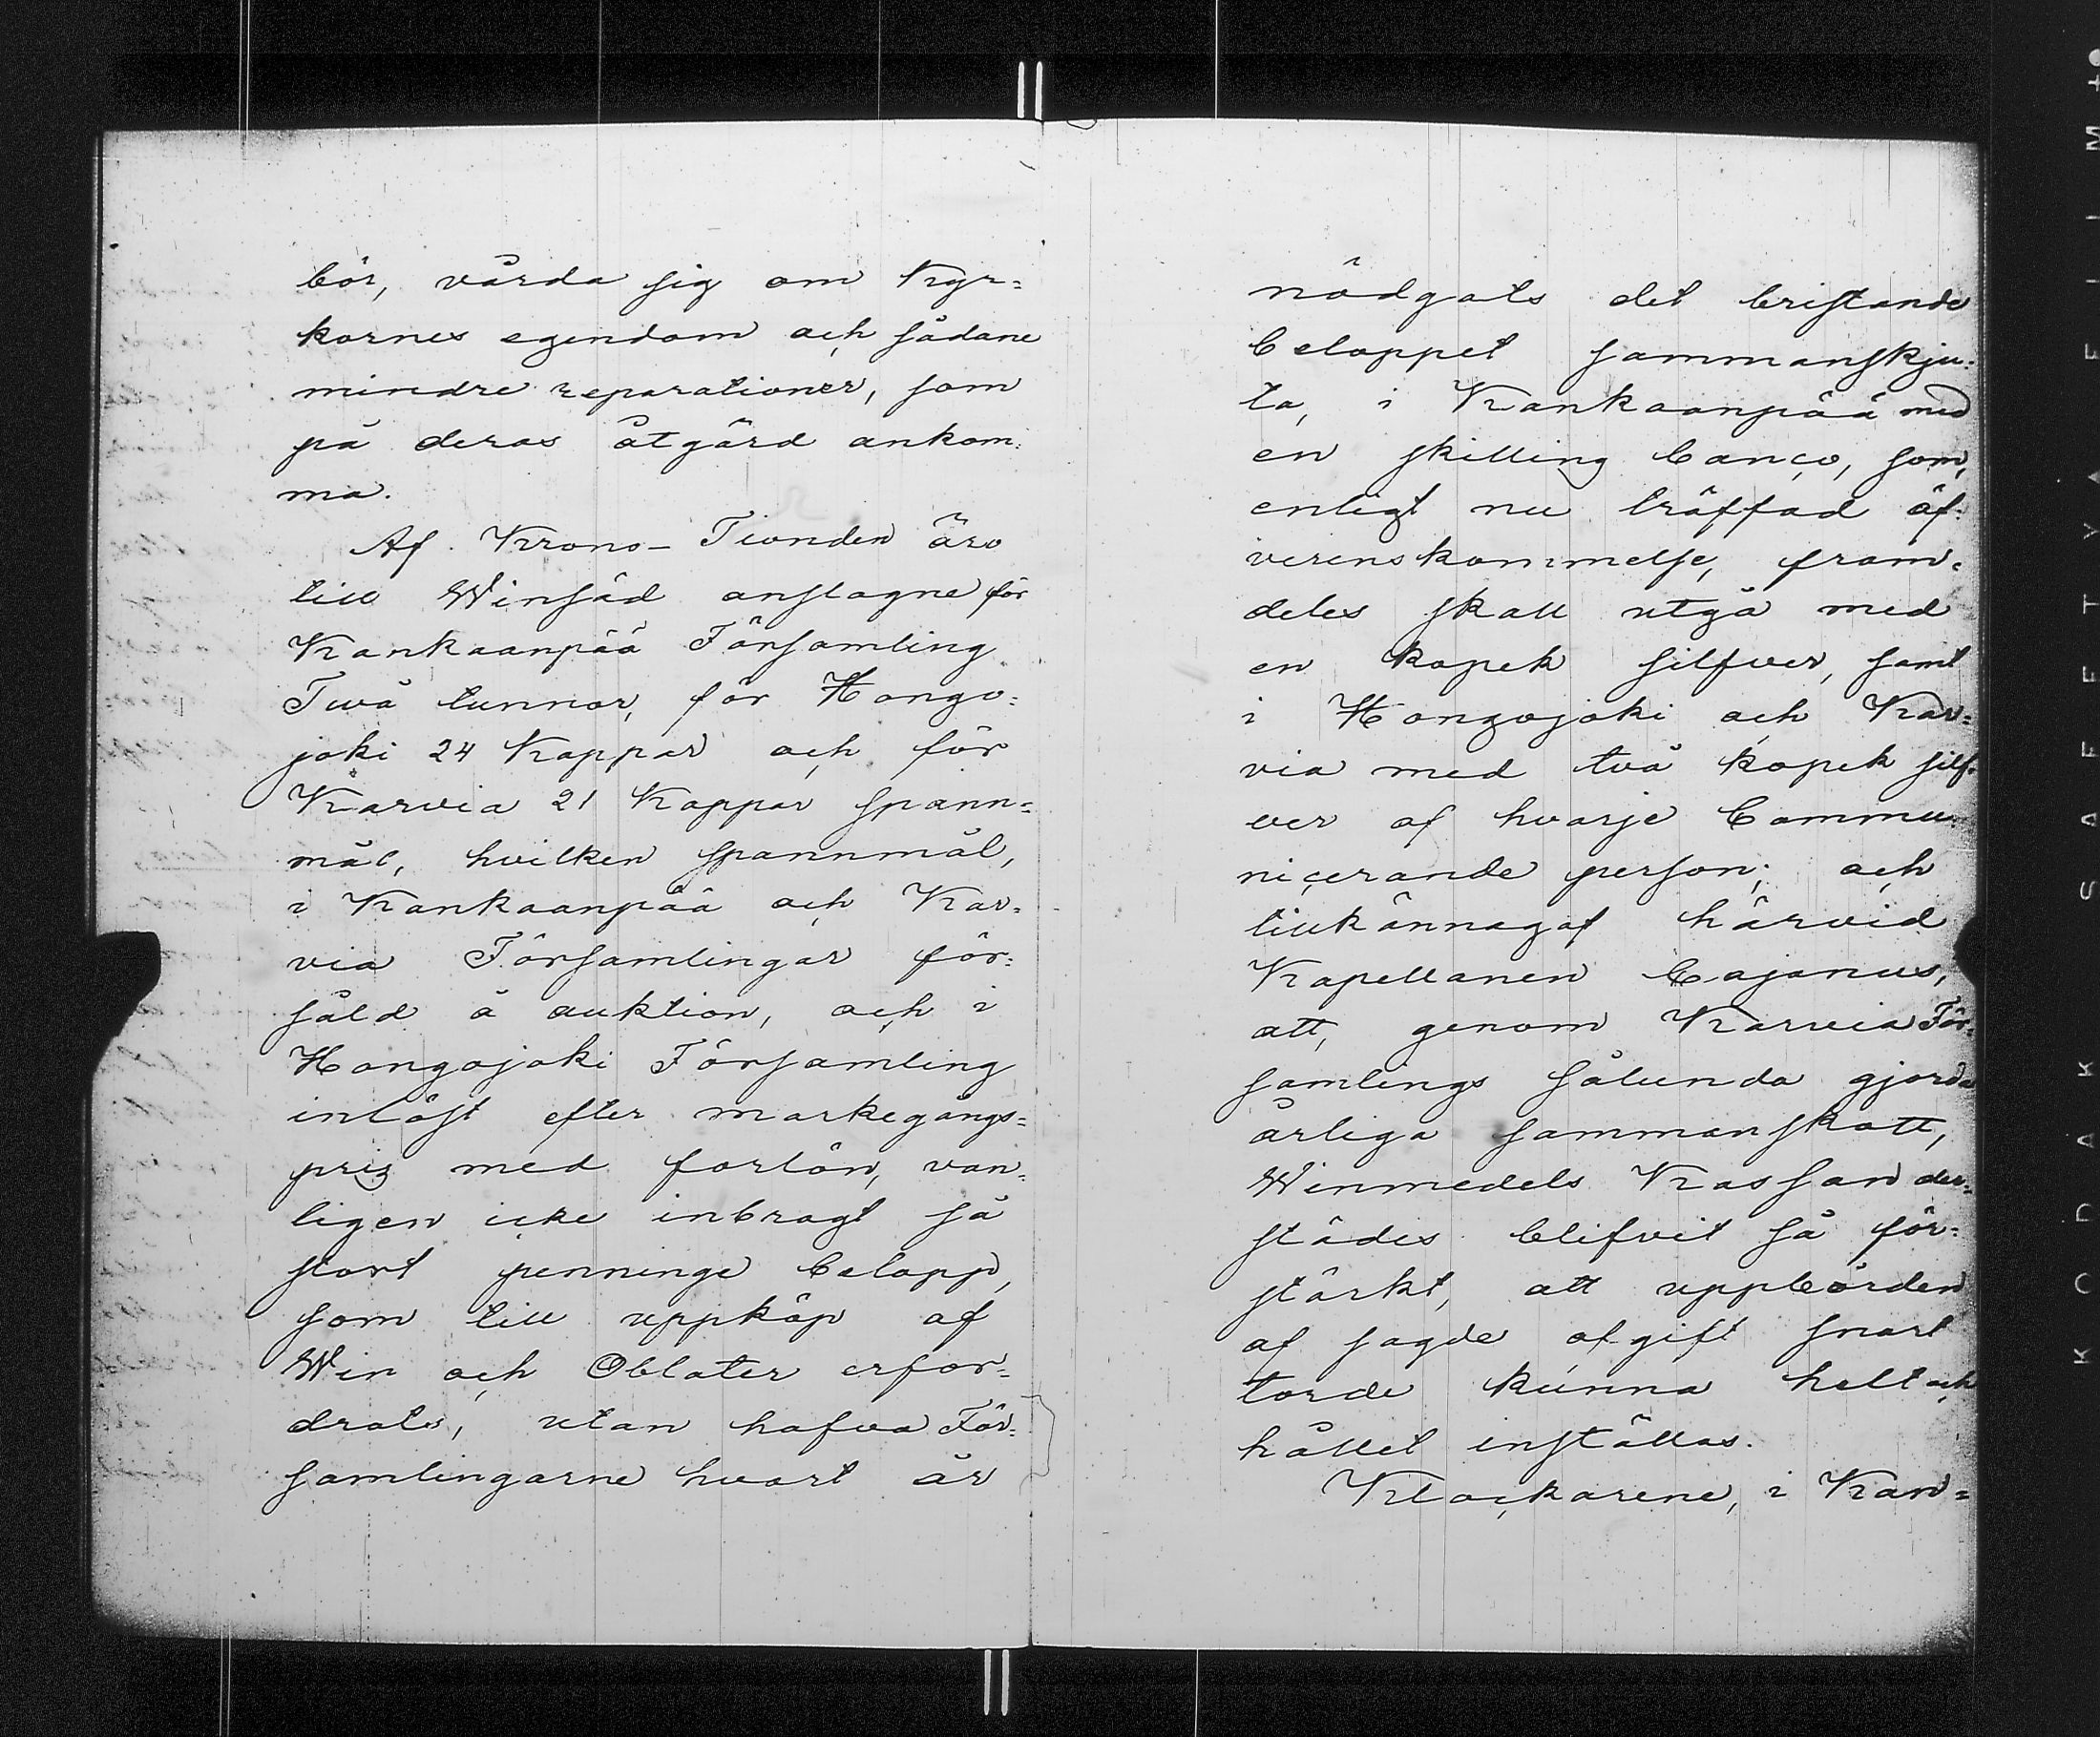 bör, vårda sig om Kyr=
kornes egendom och sådane
mindre reparationer, som
på deras åtgärd ankom=
ma.
Af Krono-Tionden äro
till Winsäd anslagne för
Kankaanpää Församling
Två tunnor, för Hongo=
joki 24 Kappar och för
Karvia 21 Kappar spann=
mål, hvilken spannmål,
i Kankaanpää och Kar=
via Församlingar för=
såld å auktion, och i
Hongojoki Församling
inlöst efter markegångs=
pris med forlön, van=
ligen icke inbragt så
stort penninge belopp,
som till uppköp af
Win och Oblater erfor=
drats, utan hafva För=
samlingarne hvart år
nödgats det bristande
beloppet sammanskju=
ta, i Kankaanpää med
en skilling banco, som,
enligt nu träffad öf=
verenskommelse, fram=
deles skall utgå med
en kopek silfver, samt
i Hongojoki och Kar=
via med två kopek silf=
ver af hvarje Commu=
nicerande person; och
tillkännagaf härvid
Kapellanen Cajanus,
att, genom Karvia För=
samlings sålunda gjorda
årliga sammanskott,
Winmedels Kassan der=
städes blifvit så för=
stärkt, att uppbörden
af sagde afgift snart
torde kunna helt och
hållet inställas.
Klockarene, i Kan=
KODAK SAFETY FILM